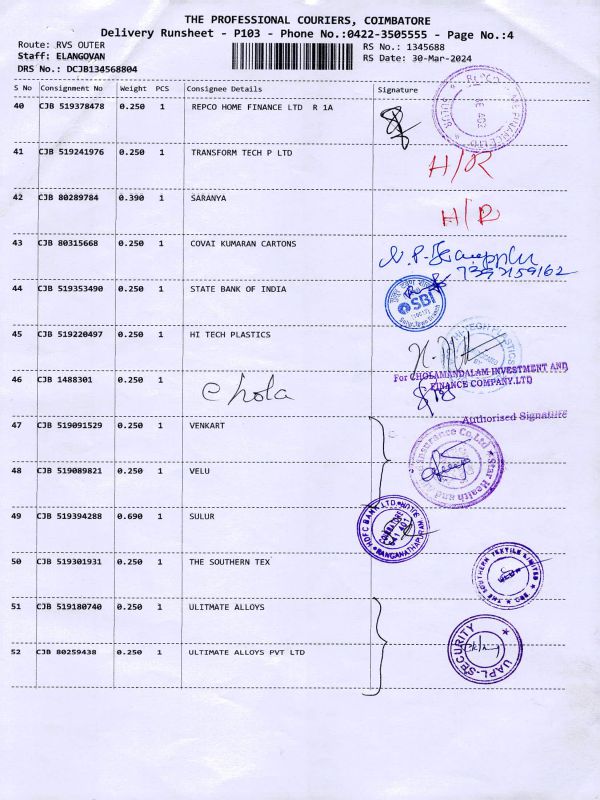 THE PROFESSIONAL COURIERS, COIMBATORE
Delivery Runsheet - P103 - Phone No.:0422-3505555 - Page No.:4
Route: RVS OUTER
RS No.: 1345688
Staff: ELANGOVAN
RS Date: 30-Mar-2024
DRS No.: DCJB134568804
S No Consignment No Weight PCS Consignee Details Signature
40 CJB 519378478 0.250 1 REPCO HOME FINANCE LTD R 1A
41 CJB 519241976 0.250 1 TRANSFORM TECH P LTD H/R
42 CJB 80289784 0.390 1 SARANYA H/R
43 CJB 80315668 0.250 1 COVAI KUMARAN CARTONS
44 CJB 519353490 0.250 1 STATE BANK OF INDIA
SBI
45 CJB 519220497 0.250 1 HI TECH PLASTICS
For CHOLAMANDALAM INVESTMENT AND
FINANCE COMPANY.LTD
46 CJB 1488301 0.250 1 Chola
Authorised Signature
47 CJB 519091529 0.250 1 VENKART
Star Health and Insurance Co Ltd
48 CJB 519089821 0.250 1 VELU
49 CJB 519394288 0.690 1 SULUR
HDFC BANK LTD
50 CJB 519301931 0.250 1 THE SOUTHERN TEX
THE SOUTHERN TEXTILE LIMITED
51 CJB 519180740 0.250 1 ULITMATE ALLOYS
52 CJB 80259438 0.250 1 ULTIMATE ALLOYS PVT LTD
UAPL-SECURITY